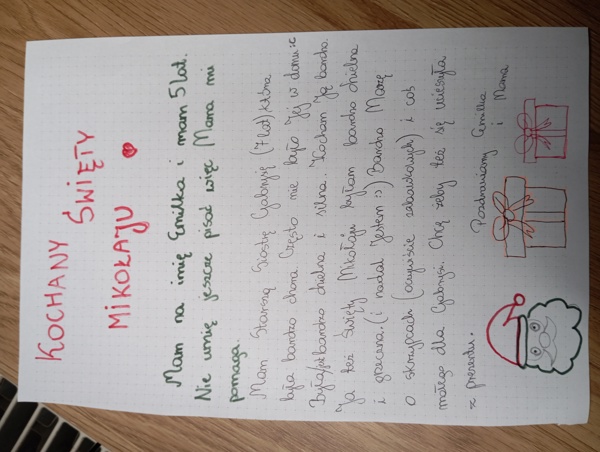 KOCHANY
ŚWIĘTY
MIKOŁAJU
Mam na imię Emilka i mam 5 lat.
Nie umię jeszcze pisać więc Mama mi
pomaga.
Mam Starszą Siostrę Gabrysię (7 lat), która
była bardzo chora. Często nie było Jej w domu :c
Była/jest bardzo dzielna i silna. Kocham Ją bardzo.
Ja też Święty Mikołaju byłam bardzo dzielna
i grzeczna. (i nadal Jestem :)) Bardzo Marzę
o skrzypcach (oczywiście zabawkowych) i coś
małego dla Gabrysi. Chcę żeby też się ucieszyła
z prezentu.
Pozdrawiamy Emilka
i Mama